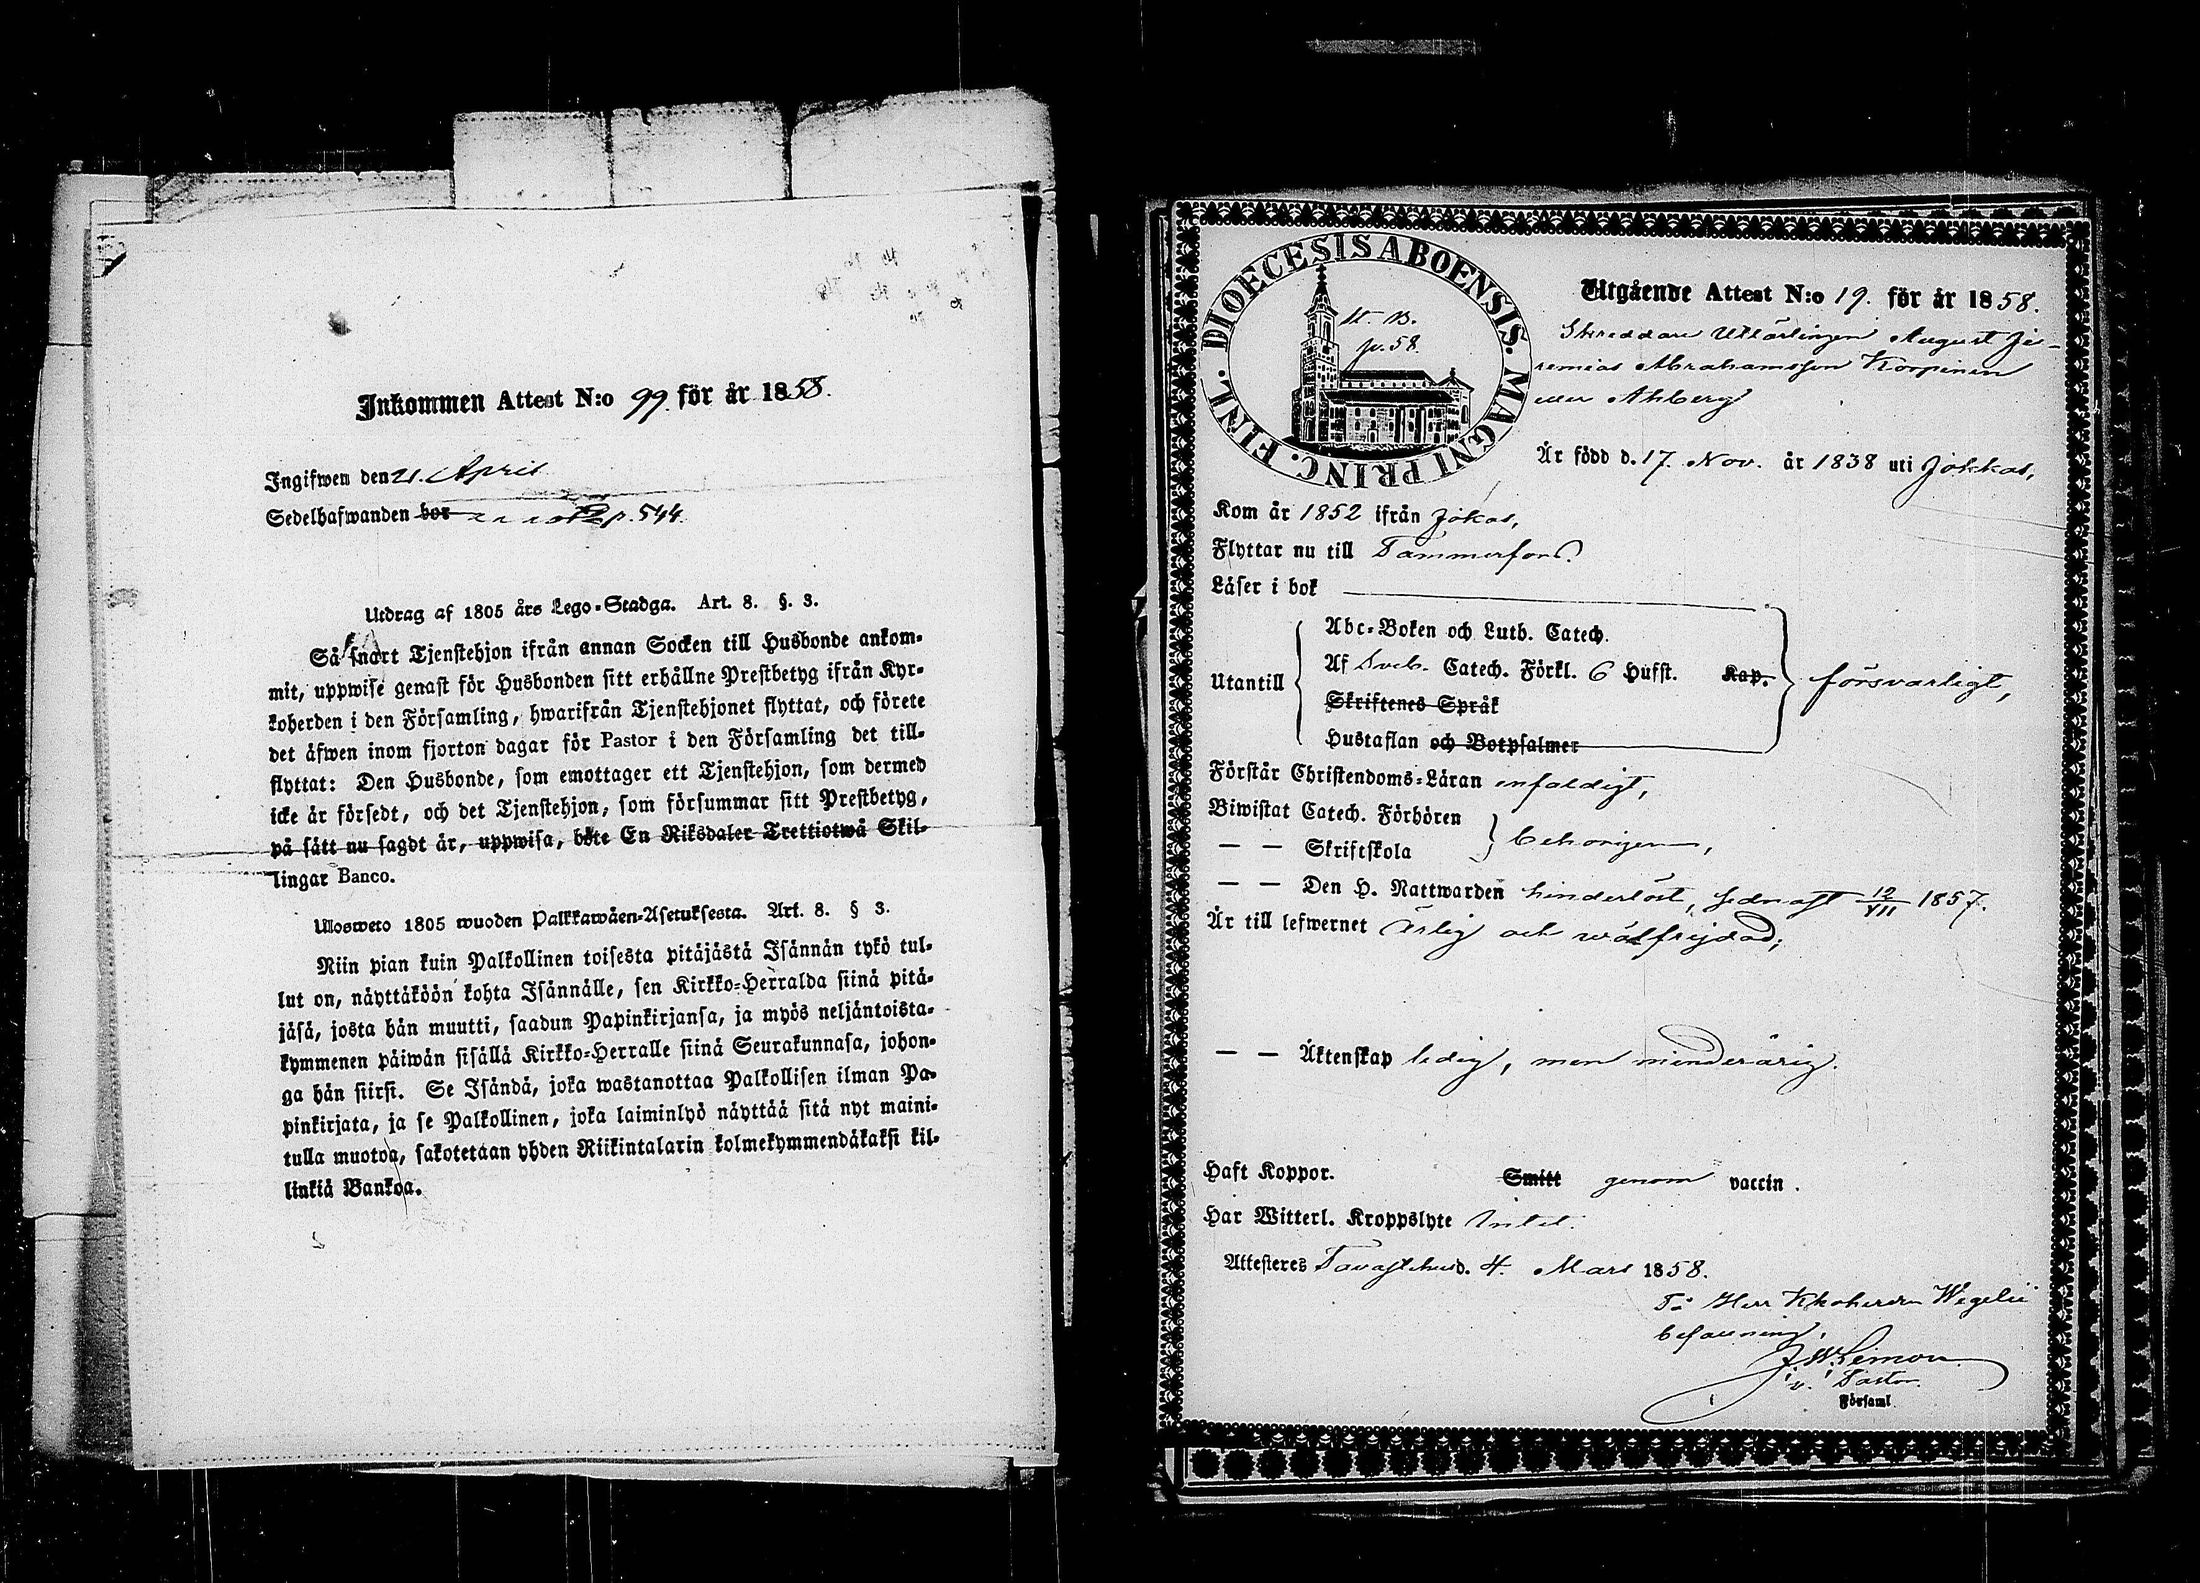 Inkommen Attest N:o 99. för år 1858.
Ingifwen den 21. April
Sedelhafwanden bor p. 544.
Utdrag af 1805 års Lego-Stadga. Art. 8. §. 3.
Så snart Tjenstehjon ifrån annan Socken till Husbonde ankom-
mit, uppwise genast för Husbonden sitt erhållne Prestbetyg ifrån Kyr-
koherden i den Församling, hwarifrån Tjenstehjonet flyttat, och förete
det äfwen inom fjorton dagar för Pastor i den Församling det till-
flyttat: Den Husbonde, som emottager ett Tjenstehjon, som dermed
icke är försedt, och det Tjenstehjon, som försummar sitt Prestbetyg,
på sätt nu sagdt är, uppwisa, böte En Riksdaler Trettiotwå Skil-
lingar Banco.
Ulosweto 1805 wuoden Palkkawäen-Asetuksesta. Art. 8. § 3.
Niin pian kuin Palkollinen toisesta pitäjästä Isännän tykö tul-
lut on, näyttäköön kohta Isännälle, sen Kirkko-Herralda siinä pitä-
jäsä, josta hän muutti, saadun Papinkirjansa, ja myös neljäntoista-
kymmenen päiwän sisällä Kirkko-Herralle siinä Seurakunnasa, johon-
ga hän siirsi. Se Isändä, joka wastanottaa Palkollisen ilman Pa-
pinkirjata, ja se Palkollinen, joka laiminlyö näyttää sitä nyt maini-
tulla muotoa, sakotetaan yhden Riikintalarin kolmekymmendäkaksi kil-
linkiä Bankoa.
DIOECESIS ABOENSIS. MAGNI PRINC. FINL.
p. 58.
Utgående Attest N:o 19. för år 1858.
Skreddare Utlärlingen August Je-
remias Abrahamsson Korpinen
eller Ahlberg
Är född d. 17. Nov. år 1838 uti Jokkas,
Kom år 1852 ifrån Jokas,
Flyttar nu till Tammerfors.
Läser i bok
Utantill
Abc-Boken och Luth. Catech.
Af Sveb. Catech. Förkl. 6 Hufst. Kap.
Skriftenes Språk
Hustaflan och Botpsalmer
försvarligt,
Förstår Christendoms-Läran enfaldigt,
Biwistat Catech. Förhören
— — Skriftskola
behörigen,
— — Den H. Nattwarden hinderlöst, sednast 12/VII 1857.
Är till lefwernet ärlig och wälfrejdad,
— — Äktenskap ledig, men minderårig.
Haft Koppor. Smitt genom vaccin.
Har Witterl. Kroppslyte Intet.
Attesteres Tavastehus d. 4. Mars 1858.
På Herr Kkoherden Wegelii
befallning,
v. Pastor.
Församl